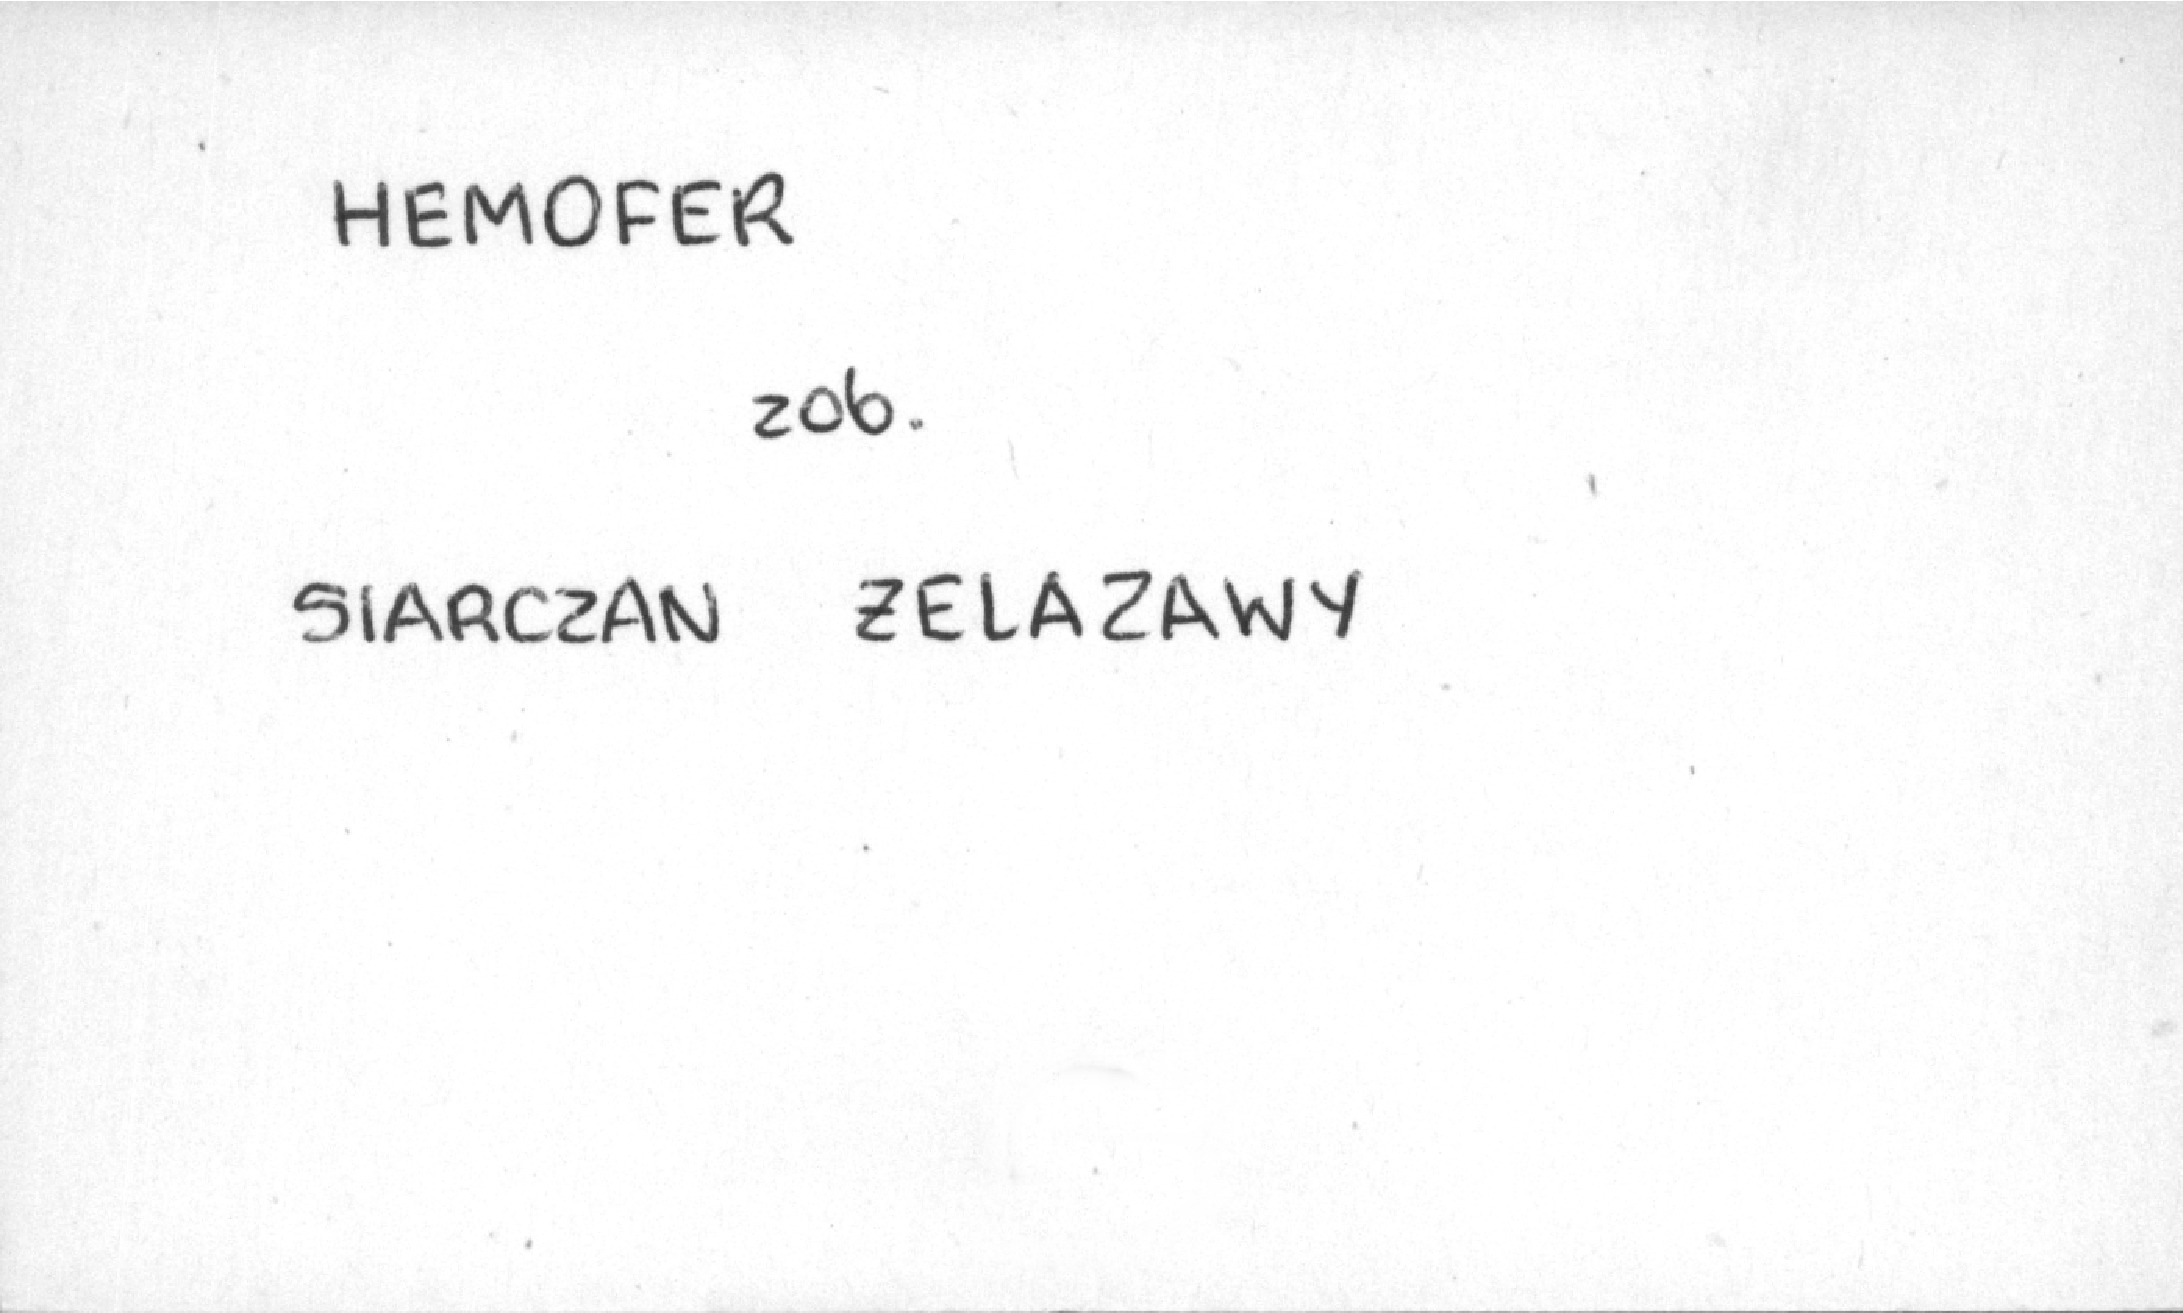 HEMOFER
zob.
SIARCZAN ŻELAZAWY